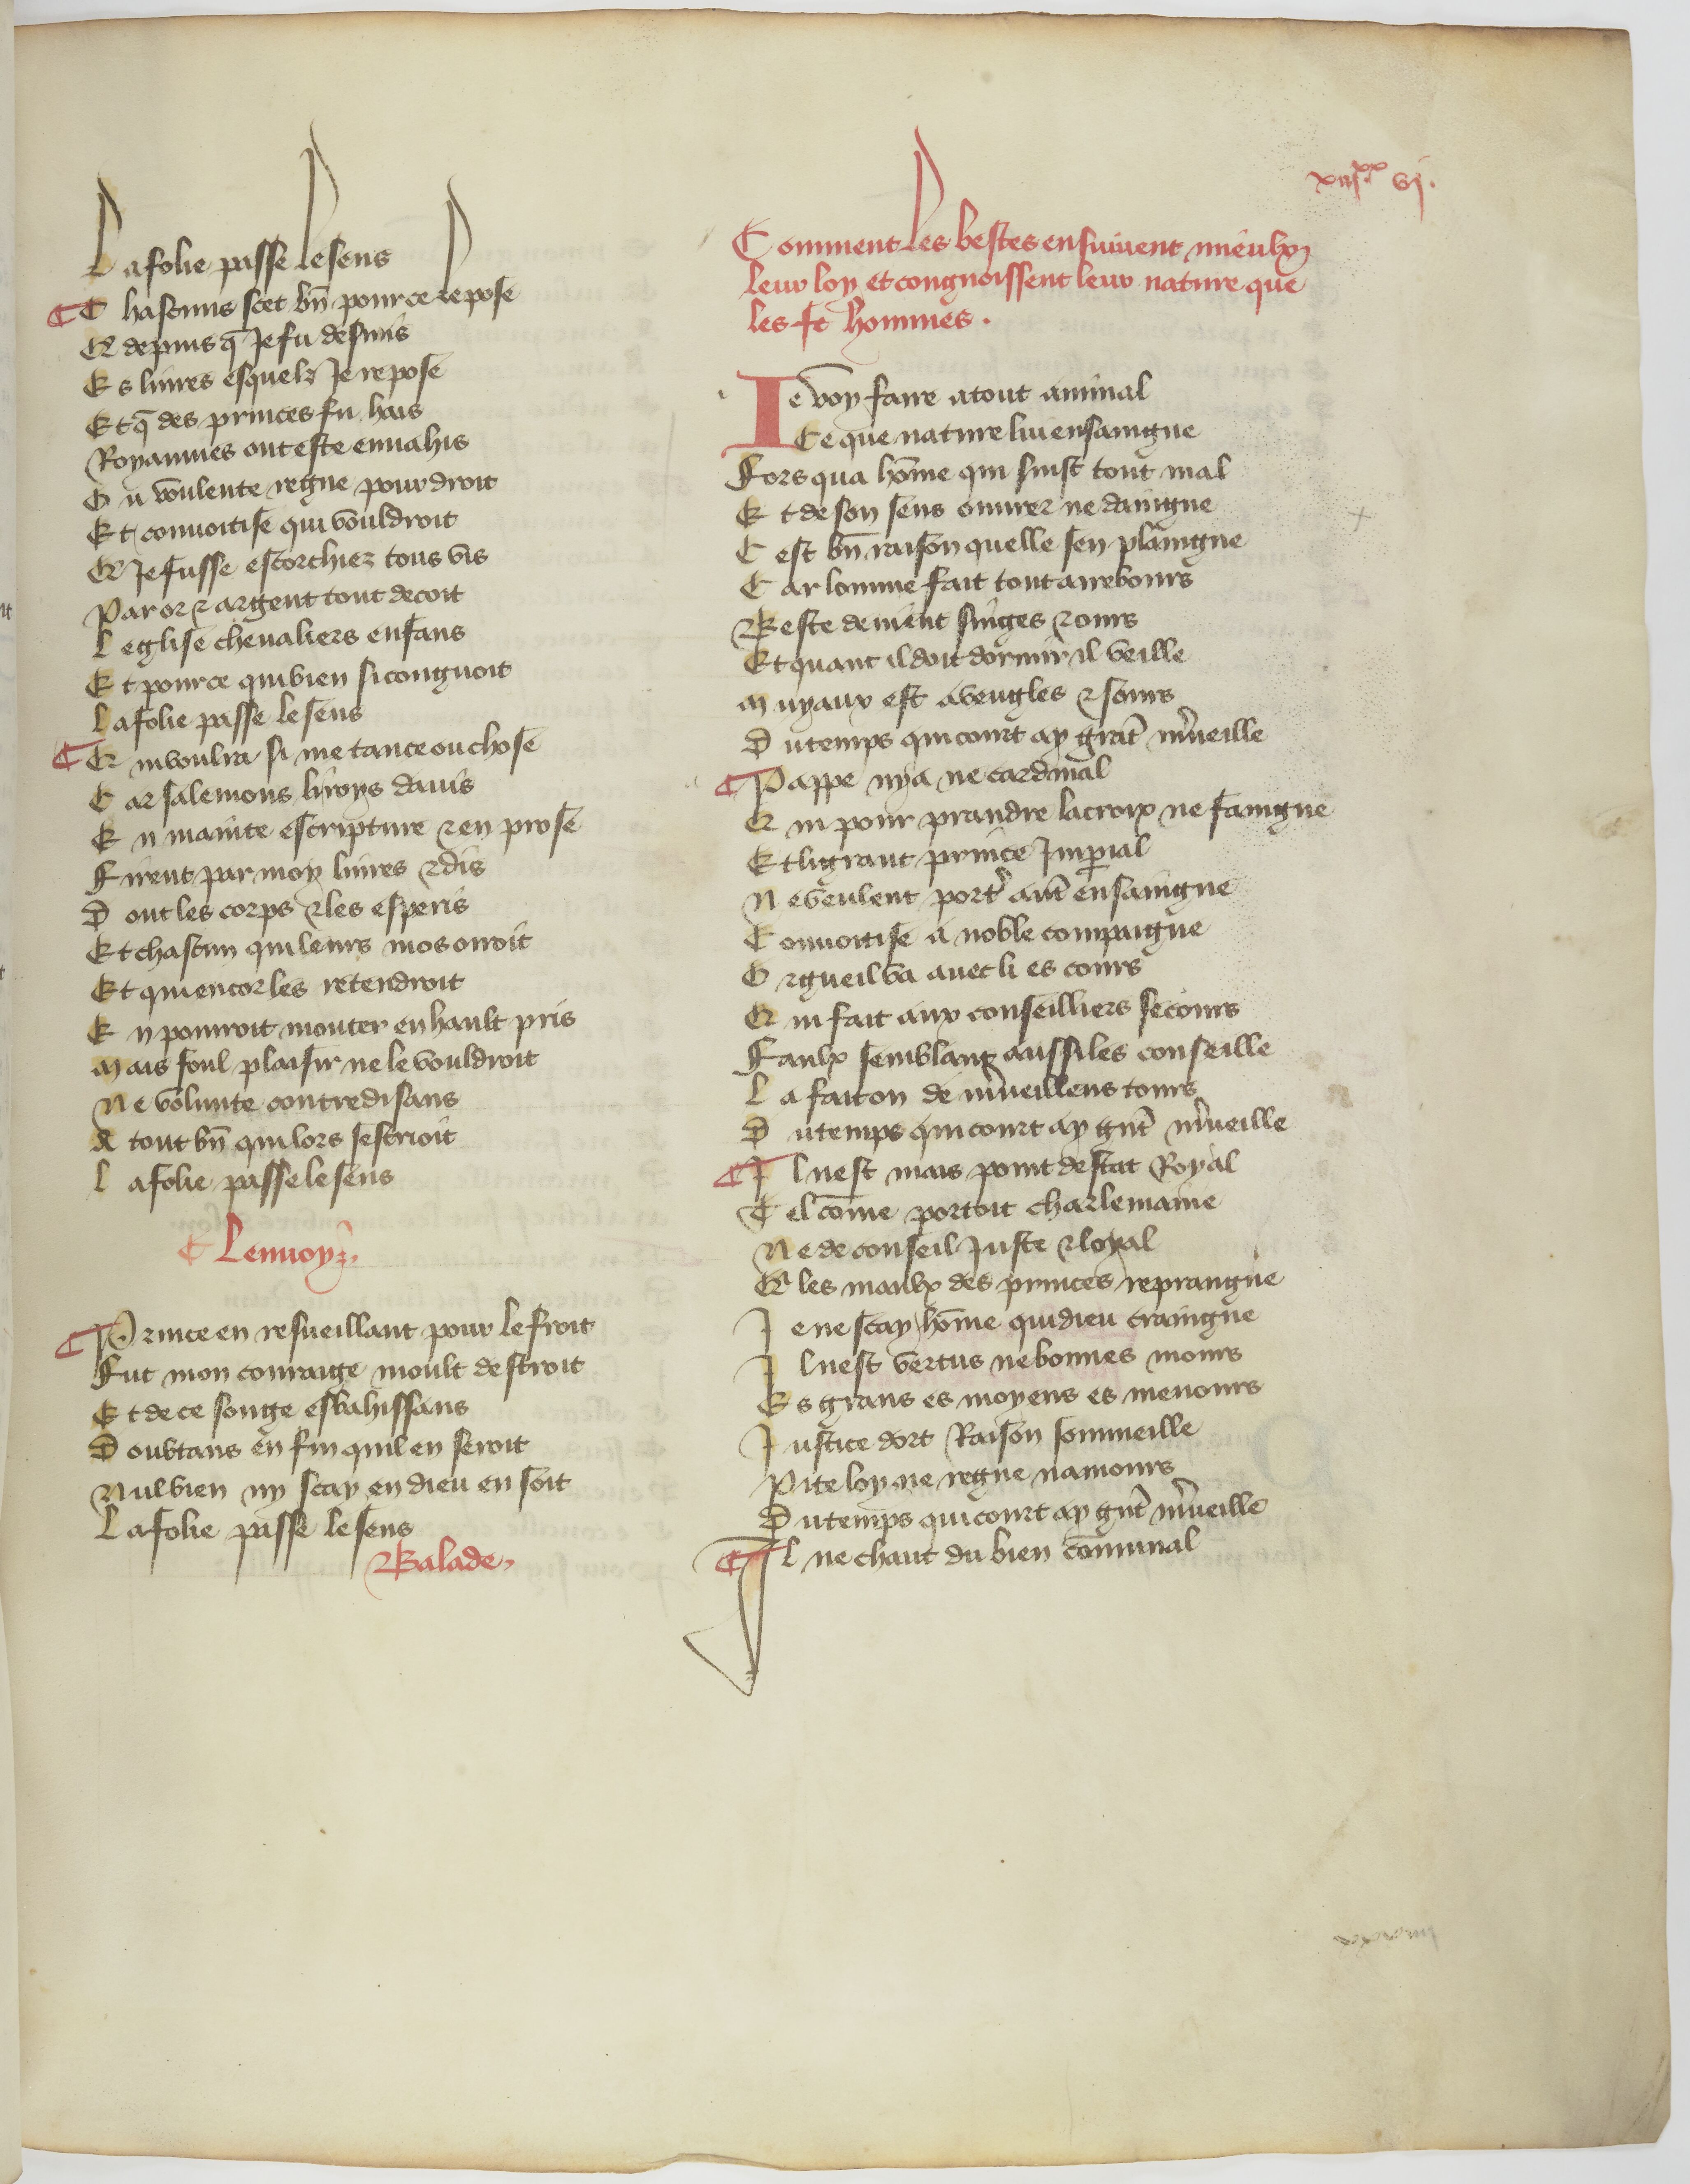 xiijxx vj.
La folie passe le sens
Chascuns scet bn̄ pour ce repose
Et depuis q̄ Je fu desmis
Es liures esquelz Je repose
Et q̄ des princes fu hais
Royaumes ont este enuahis
Ou voulente regne pour droit
Et conuoitise qui vouldroit
Et Je fusse escorchiez tous vis
Par or ⁊ argent tout decoit
Leglise cheualiers enfans
Et pource qui bien si congnoit
La folie passe le sens
Et
Car salemons li roys dauis
En mainte escripture ⁊ en prose
Firent par moy liures ⁊ dis
Dont les corps ⁊ les esperis
Et chascun qui leurs mos orroit
Et qui encor les retendroit
En pourroit monter en hault pris
Mais foul plaisir ne le vouldroit
Ne volunte contredisans
A tout bn̄ qui lors sescrioit
La folie passe le sens
Lenuoy
Prince en resueillant pour le froit
Fut mon couraige moult destroit
Et de ce songe esbahissans
Doubtans en fin quil en seroit
Nul bien ny scay en dieu en soit
La folie passe le sens
Balade.
Comment les bestes ensuiuent mieulx
leur loy et congnoissent leur nature que
les fē hommes.
Je voy faire a tout animal
Ce que nature lui ensaingne
Fors qua hōme qui suist tout mal
Et de son sens ouurer ne daingne
Cest bn̄ raison quelle sen plaingne
Car lomme fait tout a rebours
Beste deuient singes ⁊ ours
Et quant il doit dormir il veille
Muyaux est aveugles ⁊ sours
Du temps qui court ay grāt m̄ueille
Pappe nya ne cardinal
Et
Et li grant prince Imperial
Ne veulent port' aut̄ ensaingne
Conuoitise a noble compaigne
Orgueil va auec li es cours
Et
Faulx semblant aussi les conseille
La fait on de m̄ueilleus tours
Du temps qui court ay gnt̄ m̄ueille
Il nest mais point destat Royal
Tel cōme portoit charlemaine
Ne de conseil Juste ⁊ loyal
Et les maulx des princes reprangne
Je ne scay hōme qui dieu craingne
Il nest vertus ne bonnes mours
Es grans es moyens es menours
Justice dort Raison sommeille
Pite loy ne regne namours
Du temps qui court ay gnt̄ m̄ueille
Il ne chaut du bien cōmunal